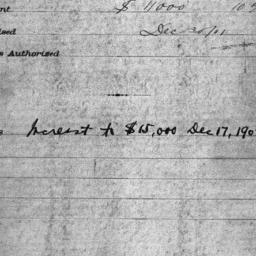 nt $ 11000 10
ised Dec 20/01
s Authorised
s Increst to $15,000 Dec 17, 190